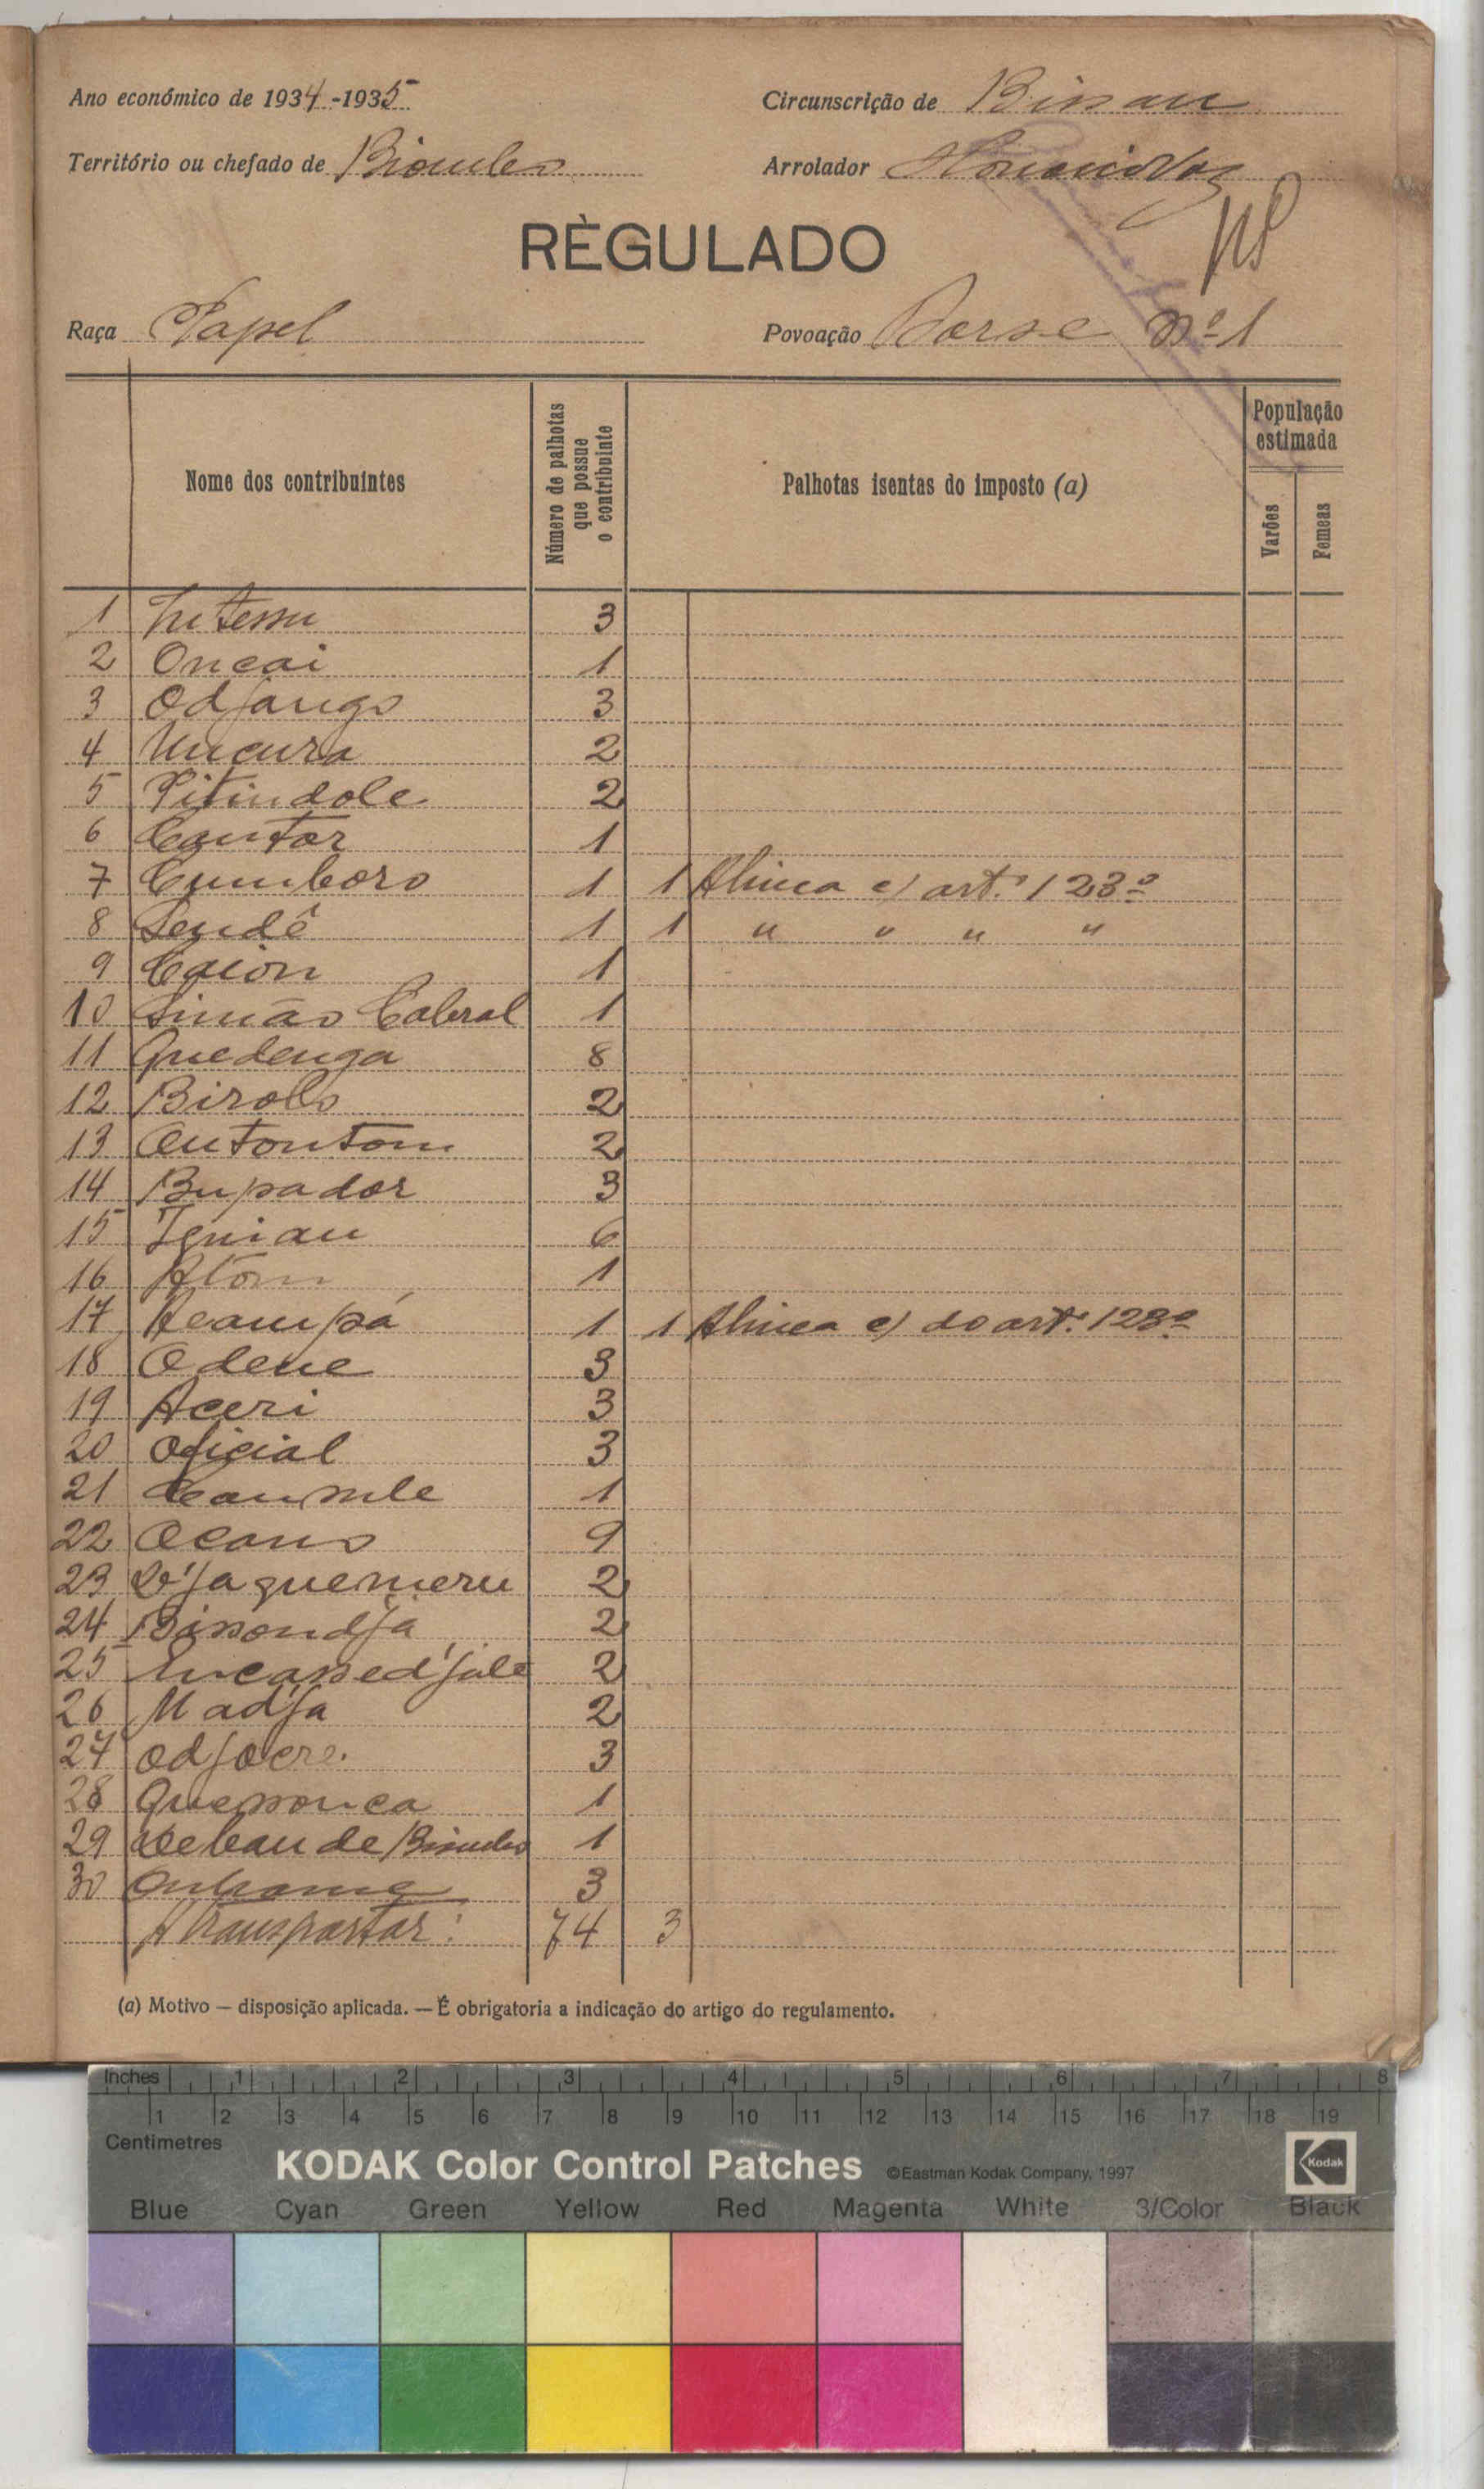 Ano económico de 1934-1935
Circunscrição de Bissau
Território ou chefado de Biombo
Arrolador
RÈGULADO
Raça Papel
Povoação Dorse nº 1
Nome dos contribuintes
Número de palhotas que possue o contribuinte
Palhotas isentas do imposto (a)
População estimada
Varões
Femeas
1 3
2 Oncai 1
3 Odjango 3
4 Uncura 2
5 Pitindole 2
6 Cantar 1
7 Cumboro 1 1 Alinea c) art.º 123º
8 Sendê 1 1 " " " "
9 Caion 1
10 Simão Cabral 1
11 Quedenga 8
12 Birolo 2
13 Antontom 2
14 Bupador 3
15 6
16 Atom 1
17 Acampá 1 1 Alinea c) do art.º 123º
18 Odene 3
19 Aceri 3
20 Oficial 3
21 1
22 Ocano 9
23 2
24 Bissondja 2
25 Encassed'jale 2
26 Mad'ja 2
27 3
28 Quessonca 1
29 de Biombo 1
30 3
A transportar: 74 3
(a) Motivo — disposição aplicada. — É obrigatoria a indicação do artigo do regulamento.
Inches 1 2 3 4 5 6 7 8
1 2 3 4 5 6 7 8 9 10 11 12 13 14 15 16 17 18 19
Centimetres
KODAK Color Control Patches ©Eastman Kodak Company, 1997 Kodak
Blue Cyan Green Yellow Red Magenta White 3/Color Black